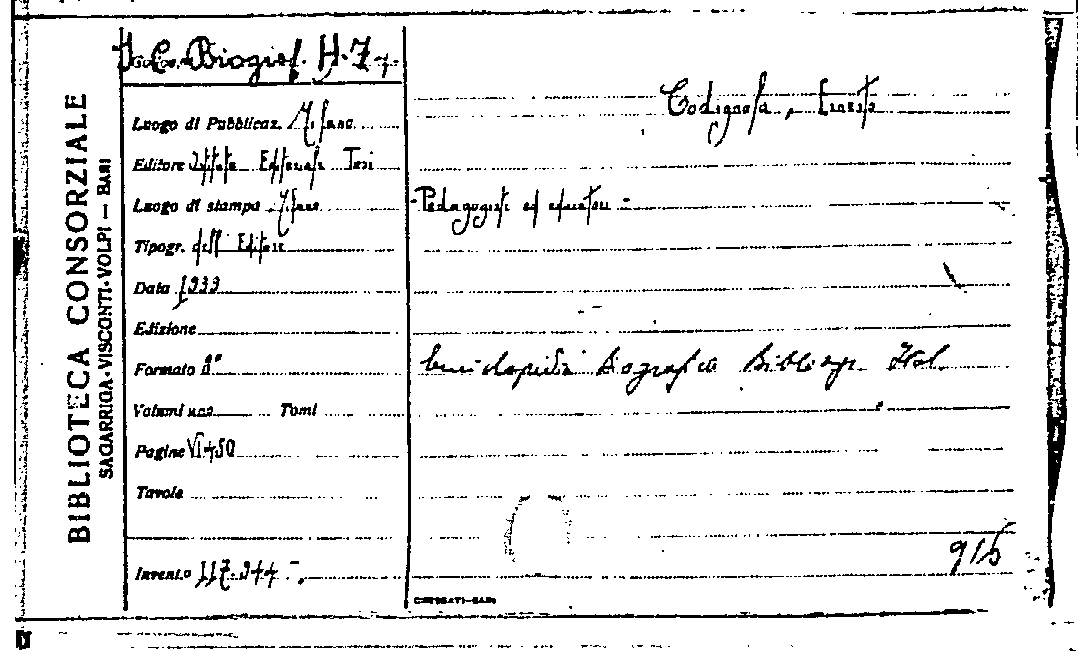 BIBLIOTECA CONSORZIALE
SAGARRIGA-VISCONTI-VOLPI — BARI
C. Biogiof. H. 7
Luogo di Pubblicaz. Milano
Editore Istituto Editoriale Tosi
Luogo di stampa Milano
Tipogr. dell' Editore
Data 1939
Edizione
Formato 8°
Volumi uno Tomi
Pagine VI+50
Tavole
Invent.o 117.944
Codignola, Ernesto
Pedagogisti ed educatori
Enciclopedia Biografica Bibliogr. Ital.
915